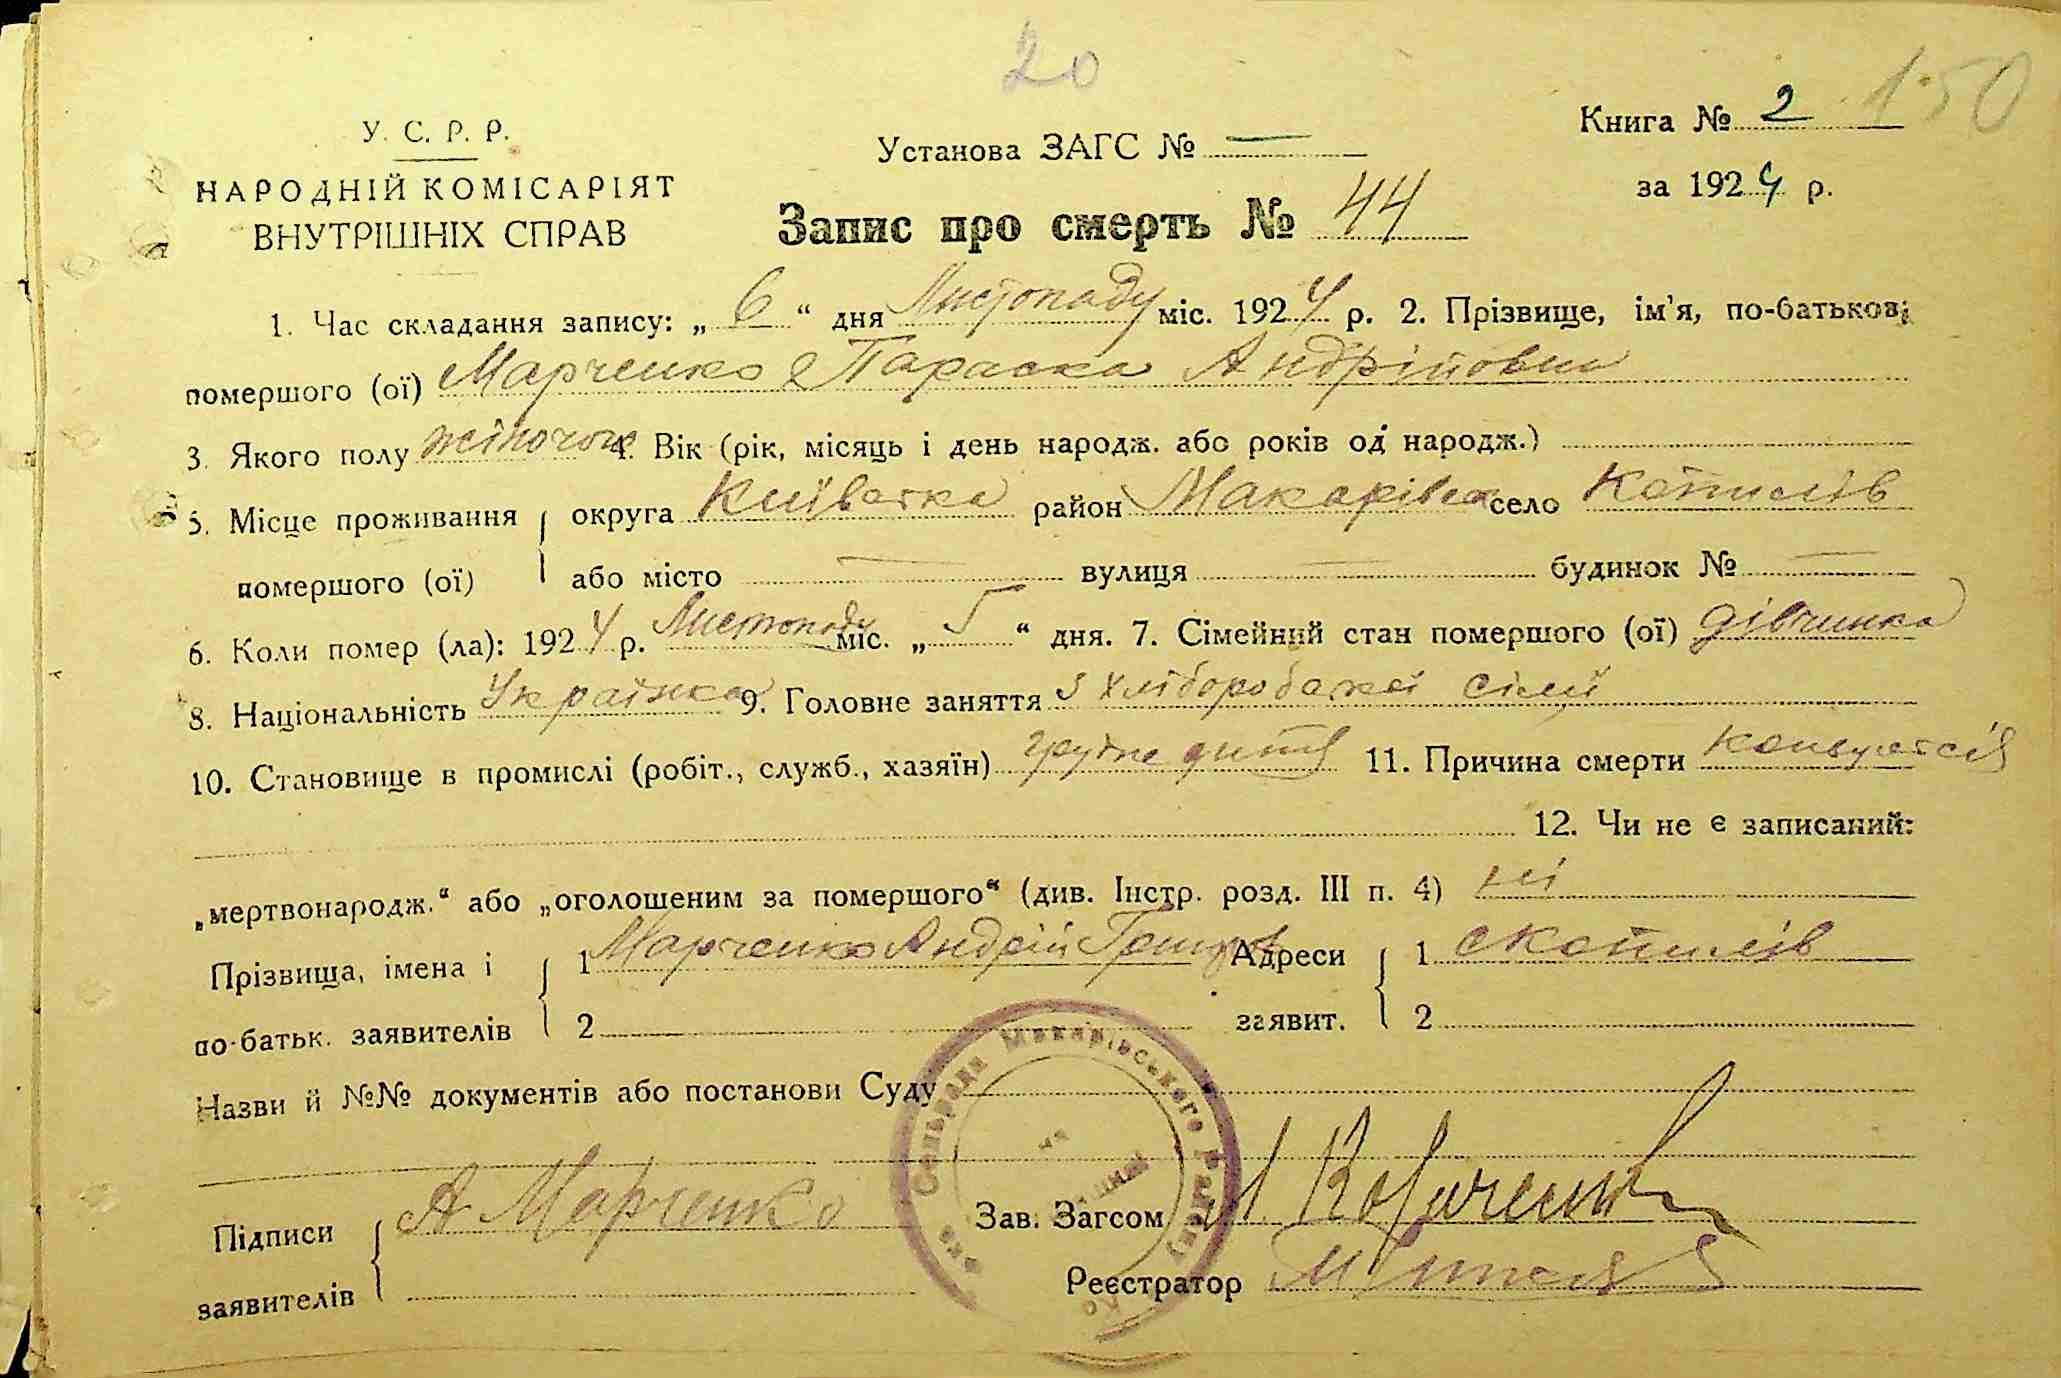 20
150
У. С. Р. Р.
НАРОДНІЙ КОМІСАРІЯТ
ВНУТРІШНІХ СПРАВ
Установа ЗАГС № —
Книга № 2
за 1924 р.
Запис про смерть № 44
1. Час складання запису: „6“ дня Листопаду міс. 1924 р. 2. Прізвище, ім'я, по-батькові
помершого (ої) Марченко Параска Андрійовна
3. Якого полу жіночок 4. Вік (рік, місяць і день народж. або років од народж.)
5. Місце проживання округа Київська район Макарівск село Копилів
помершого (ої) або місто — вулиця — будинок № —
6. Коли помер (ла): 1924 р. Листопаду міс. „5“ дня. 7. Сімейний стан помершого (ої) дівчинка
8. Національність Українка 9. Головне заняття з хліборобської сімї
10. Становище в промислі (робіт., служб., хазяїн) грудне дитя 11. Причина смерти конвульсія
12. Чи не є записаний:
„мертвонародж.“ або „оголошеним за помершого“ (див. Інстр. розд. III п. 4) ні
Прізвища, імена і 1 Марченко Андрій Адреси 1 с Копилів
по-батьк. заявителів 2 заявит. 2
Назви й №№ документів або постанови Суду
Підписи А Марченко Зав. Загсом
заявителів Реєстратор
Сельради Макарівського Району